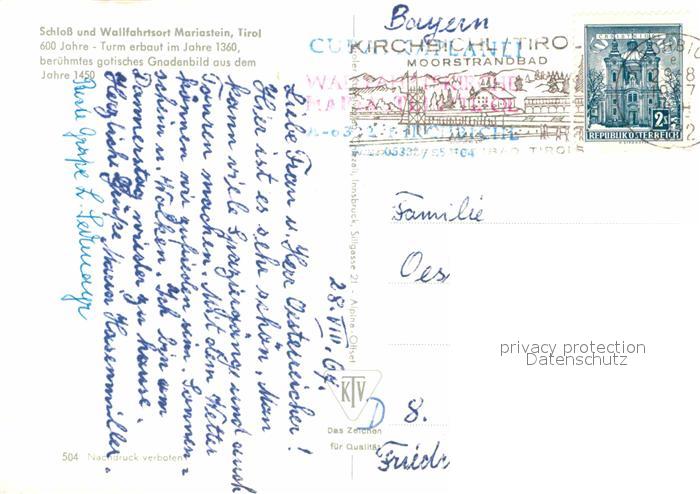 Schloß und Wallfahrtsort Mariastein, Tirol
600 Jahre - Turm erbaut im Jahre 1360,
berühmtes gotisches Gnadenbild aus dem
Jahre 1450
28. VIII. 67.
Liebe Frau u. Herr Oesterreicher!
Hier ist es sehr schön, Man
kann viele Spaziergänge und auch
Touren machen. Mit dem Wetter
können wir zufrieden sein. Sonnen=
schein u. Wolken. Ich bin am
Donnerstag wieder zu hause.
Herzliche Grüße Maria Hasenmiller.
Beste Grüße L. Sedlmayr
504 Nachdruck verboten
Innsbruck, Sillgasse 21 - Alpina-Offset
KTV
Das Zeichen
für Qualität
Bayern
KIRCHBICHL/TIROL
MOORSTRANDBAD
CHRISTKINDL
2S
REPUBLIK ÖSTERREICH
Familie
Oes
D 8.
Friedr
privacy protection
Datenschutz